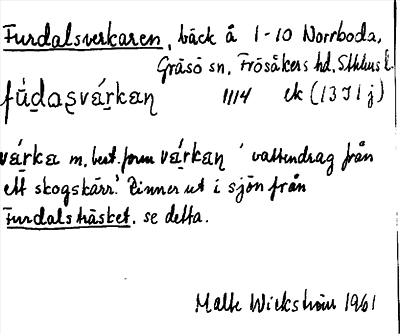 Furdalsverkaren, bäck å 1-10 Norrboda,
Gräsö sn, Frösåkers hd, Sthlms l.
fúd̲as̲várkaɳ 1114 ek (13 I 1 j)
várka m. best. form várkaɳ 'vattendrag från
ett skogskärr.' Rinner ut i sjön från
Furdalsträsket. se detta.
Malte Wickström 1961